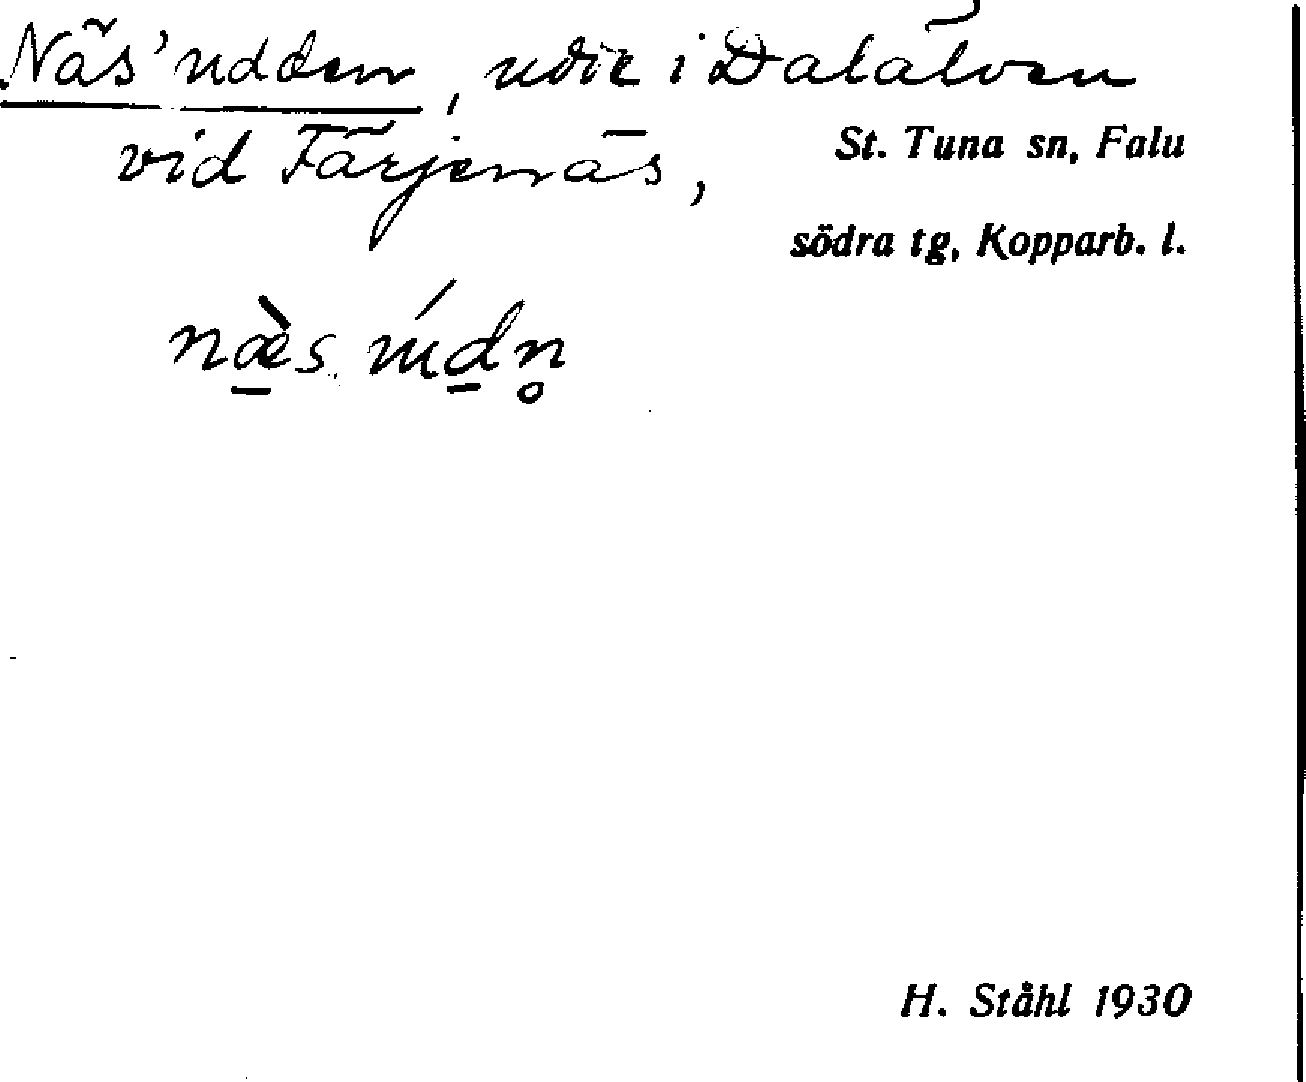 Näs'udden, udde i Dalälven
vid Färjenäs,
St. Tuna sn, Falu
södra tg, Kopparb. l.
næ̀s údn̥
H. Ståhl 1930